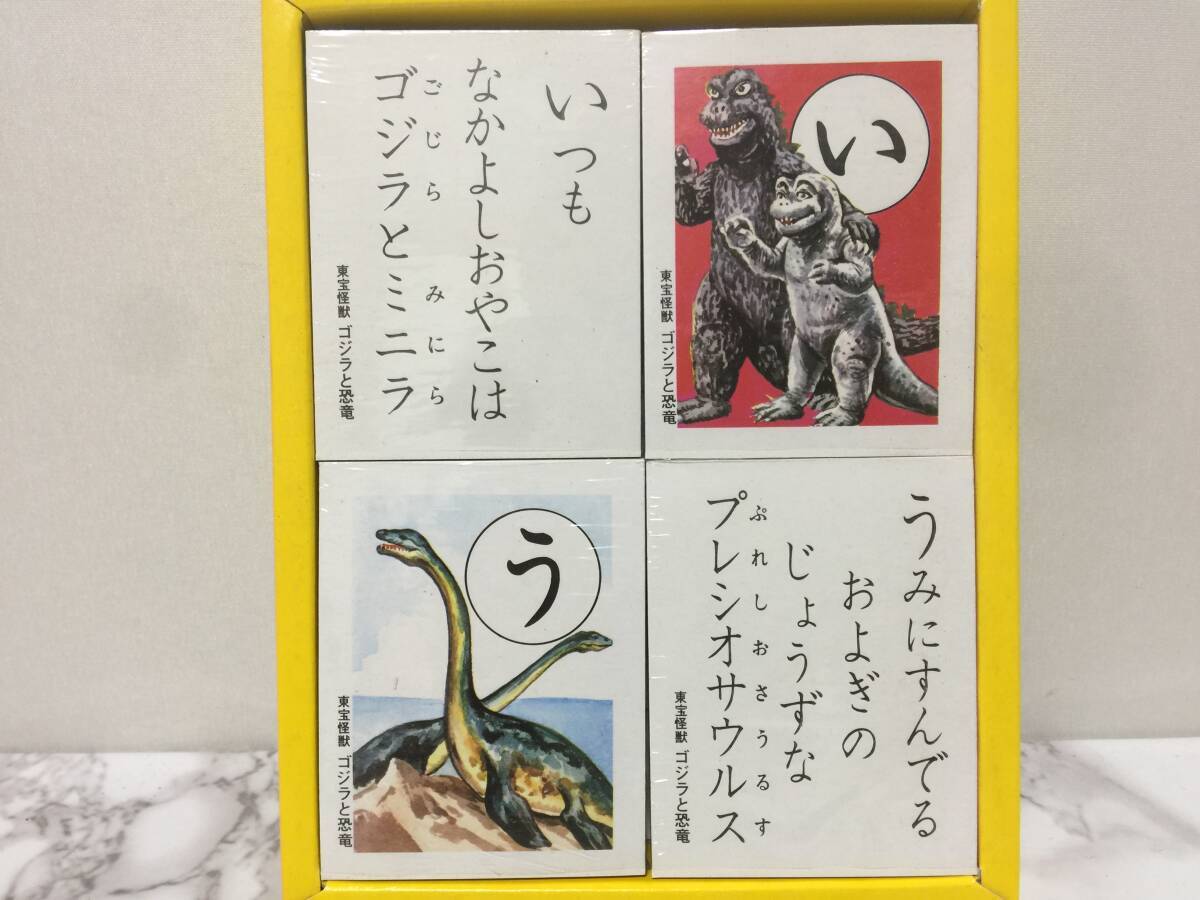 いつも
なかよしおやこは
ゴジラとミニラ
ごじら みにら
東宝怪獣 ゴジラと恐竜
い
東宝怪獣 ゴジラと恐竜
う
東宝怪獣 ゴジラと恐竜
うみにすんでる
およぎの
じょうずな
プレシオサウルス
ぷれしおさうるす
東宝怪獣 ゴジラと恐竜